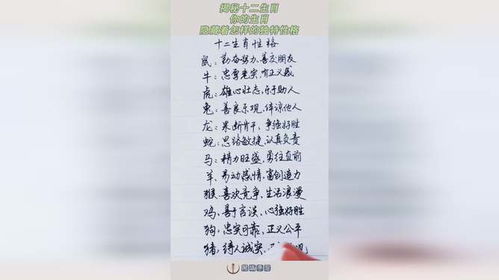 揭秘十二生肖
你的生肖
隐藏着怎样的独特性格
十二生肖性格
鼠:勤奋努力、善交朋友
牛:忠厚老实、有正义感
虎:雄心壮志、乐于助人
兔:善良乐观、体谅他人
龙:果断肯干、争强好胜
蛇:思路敏捷、认真负责
马:精力旺盛、勇往直前
羊、易动感情、富创造力
猴、喜欢竞争、生活浪漫
鸡、善于言谈、心强好胜
狗:忠实可靠、正义公平
猪:待人诚实、观